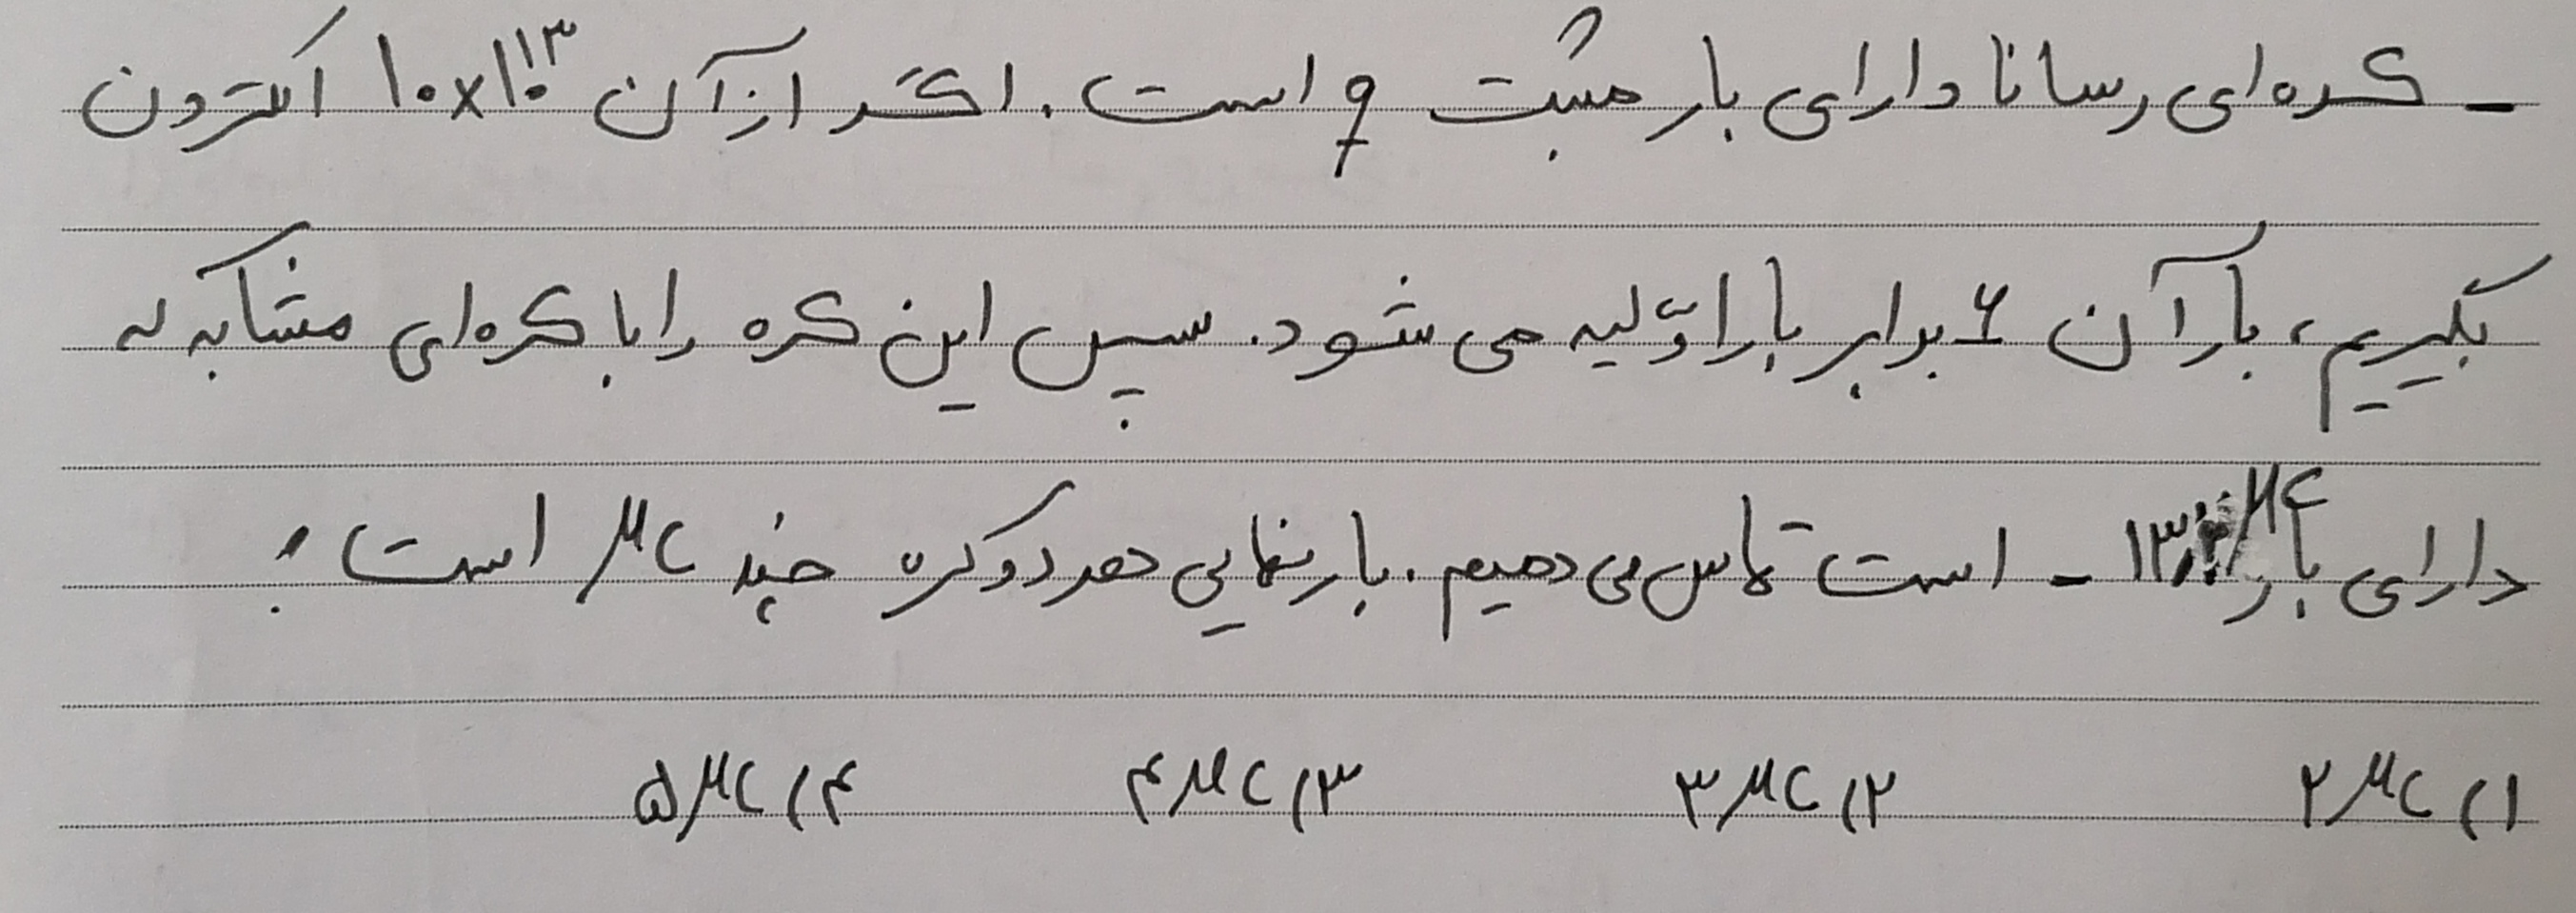 - کره‌ای رسانا دارای بار مثبت q است. اگر از آن ۱۰×۱۰¹³ الکترون
بگیریم، بار آن ۶ برابر بار اوّلیه می‌شود. سپس این کره را با کره‌ای مشابه که
دارای بار -۱۳٫۲μC است تماس می‌دهیم. بار نهایی هر دو کره چند μC است؟
۱) ۲μC ۲) ۳μC ۳) ۴μC ۴) ۵μC